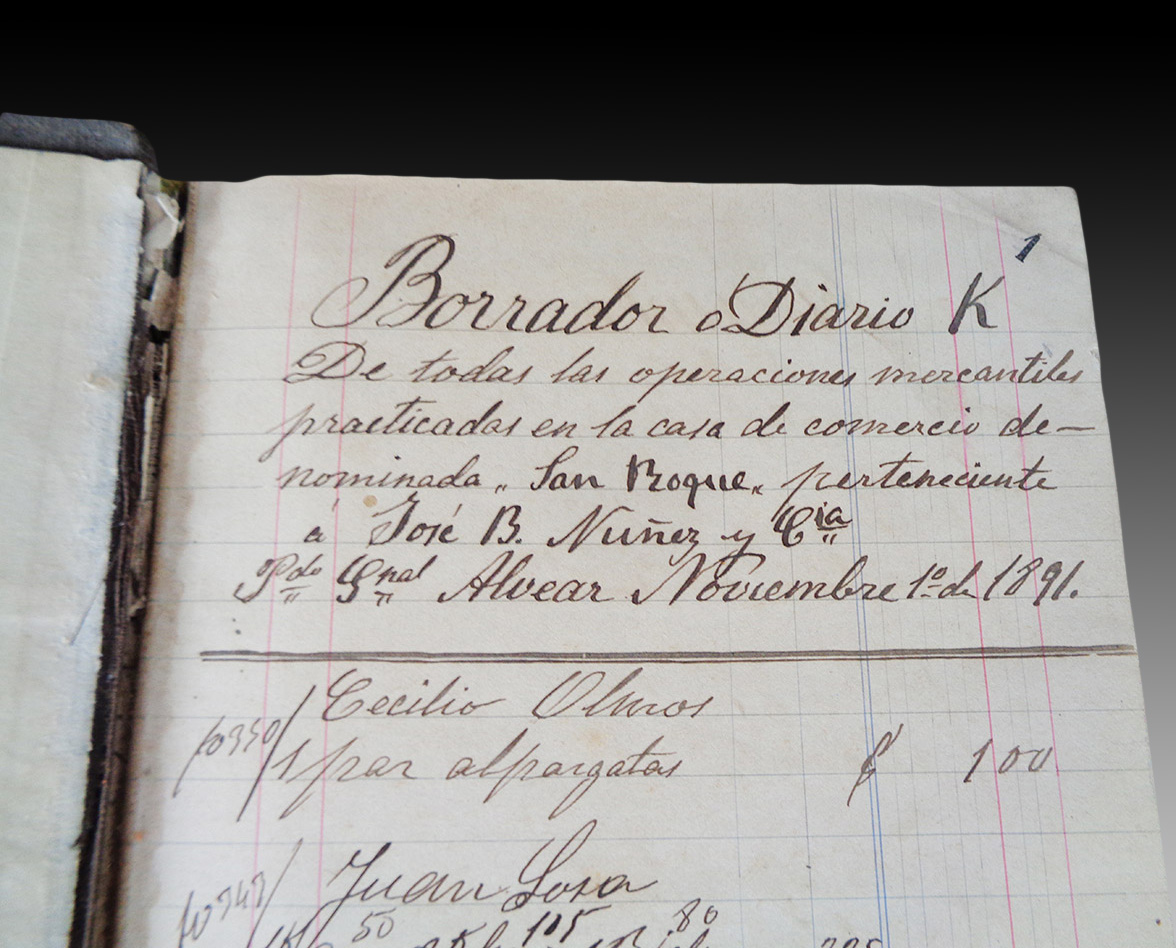 1
Borrador o Diario K
De todas las operaciones mercantiles
practicadas en la casa de comercio de—
nominada „ San Roque „ perteneciente
a José B. Nuñez y Cia
Pdo Gnal Alvear Noviembre 1º de 1891.
Cecilio Olmos
1 par alpargatas $ 1 00
Juan Sosa
50 105 80